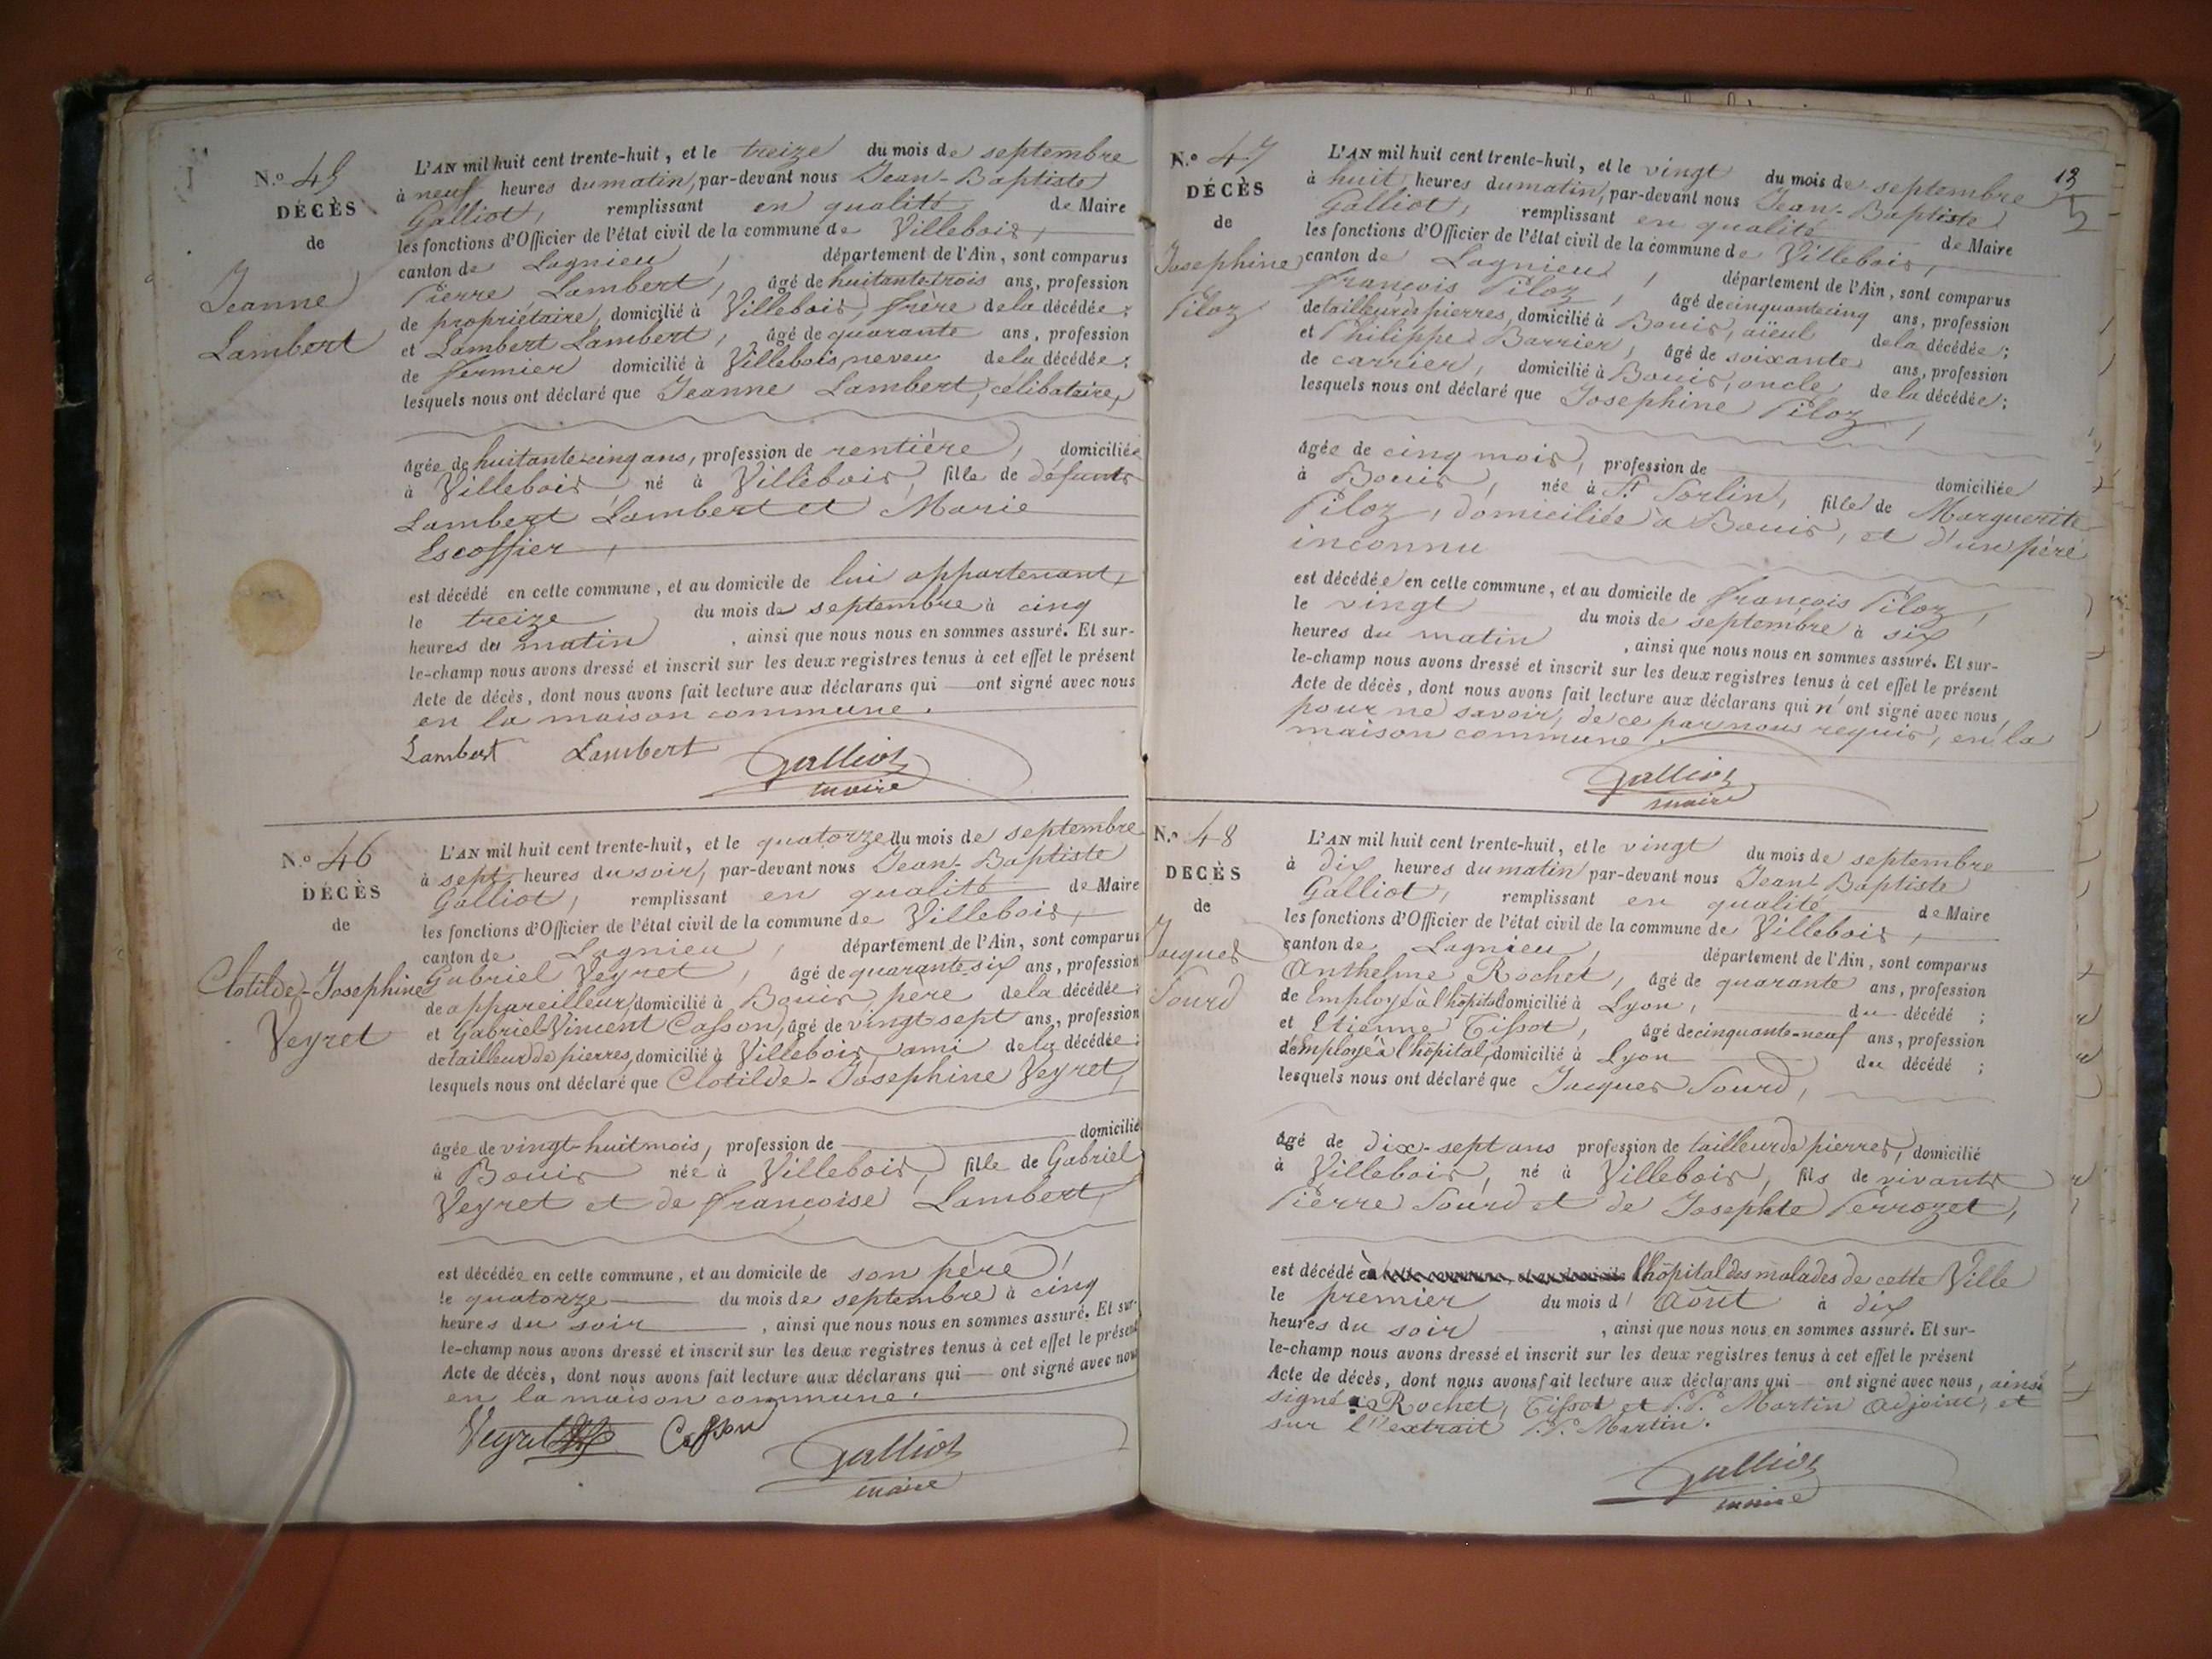 N.º 45
DÉCÈS
de
Jeanne
Lambert
L'AN mil huit cent trente-huit, et le treize du mois de septembre
à neuf heures du matin, par-devant nous Jean-Baptiste
Galliot, remplissant en qualité de Maire
les fonctions d'Officier de l'état civil de la commune de Villebois,
canton de Lagnieu, département de l'Ain, sont comparus
Pierre Lambert, âgé de huitante-trois ans, profession
de propriétaire, domicilié à Villebois, frère de la décédée;
et Lambert Lambert, âgé de quarante ans, profession
de fermier domicilié à Villebois, neveu de la décédée;
lesquels nous ont déclaré que Jeanne Lambert, célibataire,
âgée de huitante-cinq ans, profession de rentière, domiciliée
à Villebois né à Villebois, fille de défunts
Lambert Lambert et Marie
Escoffier,
est décédé en cette commune, et au domicile de lui appartenant,
le treize du mois de septembre à cinq
heures du matin, ainsi que nous nous en sommes assuré. Et sur-
le-champ nous avons dressé et inscrit sur les deux registres tenus à cet effet le présent
Acte de décès, dont nous avons fait lecture aux déclarans qui — ont signé avec nous
en la maison commune.
Lambert Lambert Galliot
maire
N.º 46
DÉCÈS
de
Clotilde-Josephine
Veyret
L'AN mil huit cent trente-huit, et le quatorze du mois de septembre
à sept heures du soir, par-devant nous Jean-Baptiste
Galliot, remplissant en qualité de Maire
les fonctions d'Officier de l'état civil de la commune de Villebois,
canton de Lagnieu, département de l'Ain, sont comparus
Gabriel Veyret, âgé de quarante six ans, profession
de appareilleur, domicilié à Bouis, père de la décédée;
et Gabriel-Vincent Casson, âgé de vingt sept ans, profession
de tailleur de pierres, domicilié à Villebois, ami de la décédée;
lesquels nous ont déclaré que Clotilde-Josephine Veyret,
âgée de vingt-huit mois, profession de — domicilié
à Bouis née à Villebois, fille de Gabriel
Veyret et de françoise Lambert,
est décédée en cette commune, et au domicile de son père,
le quatorze du mois de septembre à cinq
heures du soir, ainsi que nous nous en sommes assuré. Et sur-
le-champ nous avons dressé et inscrit sur les deux registres tenus à cet effet le présent
Acte de décès, dont nous avons fait lecture aux déclarans qui — ont signé avec nous
en la maison commune.
Veyret Casson Galliot
maire
13
N.º 47
DÉCÈS
de
Josephine
Piloz
L'AN mil huit cent trente-huit, et le vingt du mois de septembre
à huit heures du matin, par-devant nous Jean-Baptiste
Galliot, remplissant en qualité de Maire
les fonctions d'Officier de l'état civil de la commune de Villebois,
canton de Lagnieu, département de l'Ain, sont comparus
françois Piloz, âgé de cinquante cinq ans, profession
de tailleur de pierres, domicilié à Bouis, aïeul de la décédée;
et Philippe Barrier, âgé de soixante ans, profession
de carrier, domicilié à Bouis, oncle de la décédée;
lesquels nous ont déclaré que Josephine Piloz,
âgée de cinq mois, profession de domiciliée
à Bouis, née à St. Sorlin, fille de Marguerite
Piloz, domiciliée à Bouis, et d'un père
inconnu
est décédée en cette commune, et au domicile de françois Piloz,
le vingt du mois de septembre à six
heures du matin, ainsi que nous nous en sommes assuré. Et sur-
le-champ nous avons dressé et inscrit sur les deux registres tenus à cet effet le présent
Acte de décès, dont nous avons fait lecture aux déclarans qui n'ont signé avec nous,
pour ne savoir, de ce par nous requis, en la
maison commune.
Galliot
maire
N.º 48
DÉCÈS
de
Jacques
Sourd
L'AN mil huit cent trente-huit, et le vingt du mois de septembre
à dix heures du matin par-devant nous Jean-Baptiste
Galliot, remplissant en qualité de Maire
les fonctions d'Officier de l'état civil de la commune de Villebois,
canton de Lagnieu, département de l'Ain, sont comparus
Anthelme Rochet, âgé de quarante ans, profession
de Employé à l'hôpital domicilié à Lyon, du décédé;
et Etienne Tissot, âgé de cinquante-neuf ans, profession
d'Employé à l'hôpital, domicilié à Lyon du décédé;
lesquels nous ont déclaré que Jacques Sourd,
âgé de dix-sept ans profession de tailleur de pierres, domicilié
à Villebois, né à Villebois, fils de vivants
Pierre Sourd et de Josephte Perrozet,
est décédé à en cette commune, et au domicile l'hôpital des malades de cette Ville
le premier du mois d'Août à dix
heures du soir, ainsi que nous nous en sommes assuré. Et sur-
le-champ nous avons dressé et inscrit sur les deux registres tenus à cet effet le présent
Acte de décès, dont nous avons fait lecture aux déclarans qui — ont signé avec nous, ainsi
signé Rochet, Tissot et P.P. Martin Adjoint, et
sur l'extrait P.P. Martin.
Galliot
maire